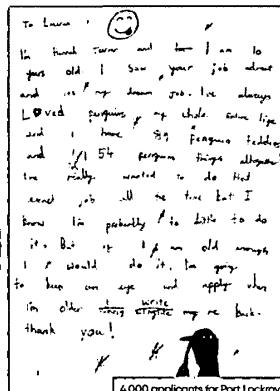 To Laura,
I'm and I am 10
years old I saw your job advert
and it's my dream job. I've always
Loved penguins my whole entire life
and I have 59 Penguin teddies
and 154 penguin things altogether
I've really wanted to do that
exact job all the time but I
know I'm probably to little to do
it. But if I am old enough
I would do it. I'm going
to keep an eye and apply when
I'm older write me back.
thank you!
4,000 applicants for Port Lockroy